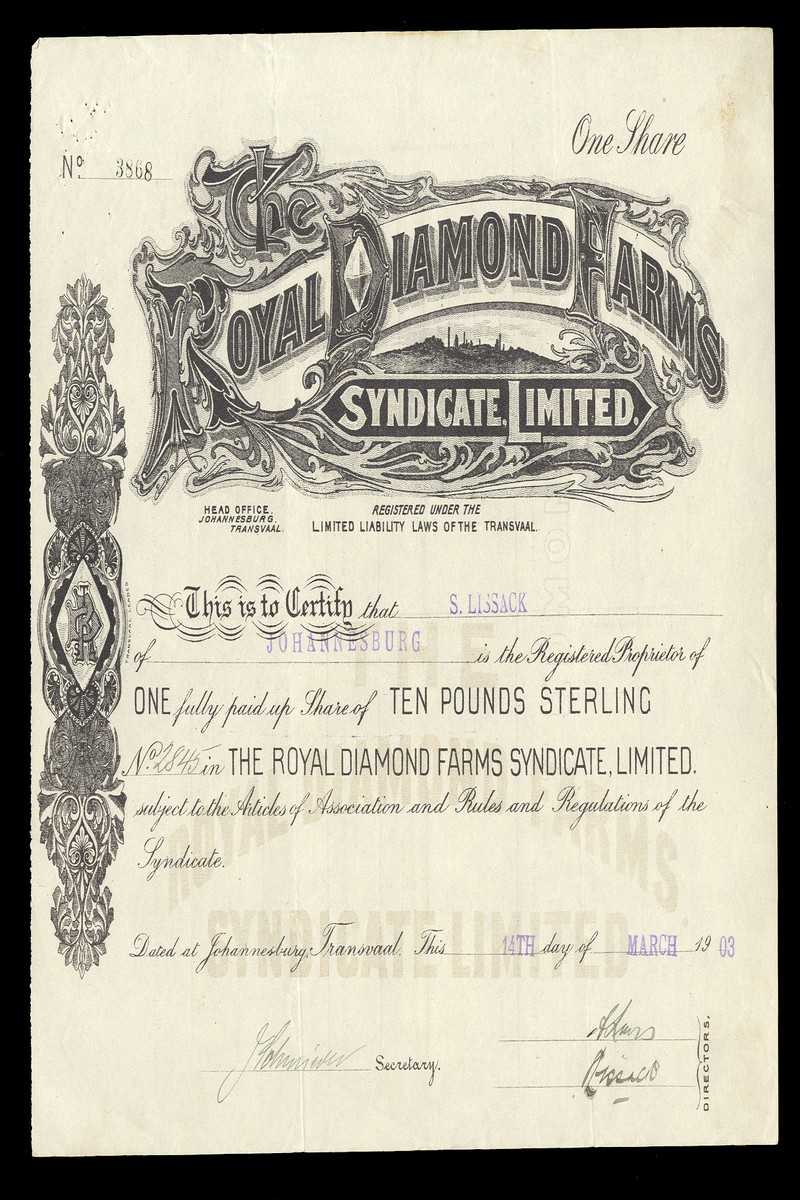 One Share
No. 3868
The
ROYAL DIAMOND FARMS
SYNDICATE, LIMITED.
HEAD OFFICE.
JOHANNESBURG,
TRANSVAAL.
REGISTERED UNDER THE
LIMITED LIABILITY LAWS OF THE TRANSVAAL.
This is to Certify that S. LISSACK
of JOHANNESBURG is the Registered Proprietor of
ONE fully paid up Share of TEN POUNDS STERLING
No. 2845 in THE ROYAL DIAMOND FARMS SYNDICATE, LIMITED.
subject to the Articles of Association and Rules and Regulations of the
Syndicate.
THE
ROYAL DIAMOND FARMS
SYNDICATE LIMITED
Dated at Johannesburg, Transvaal. This 14TH day of MARCH 1903
Secretary.
Lissack
DIRECTORS.
TRANSVAAL LEADER